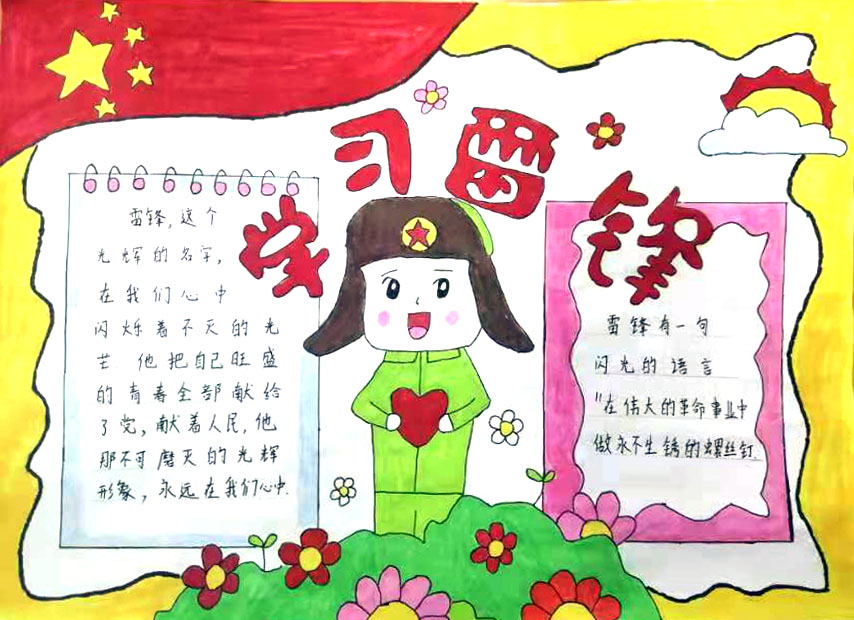 学习雷锋
雷锋，这个
光辉的名字，
在我们心中
闪烁着不灭的光
芒 他把自己旺盛
的青春全部献给
了党，献着人民，他
那不可磨灭的光辉
形象，永远在我们心中.
雷锋有一句
闪光的语言
"在伟大的革命事业中
做永不生锈的螺丝钉.